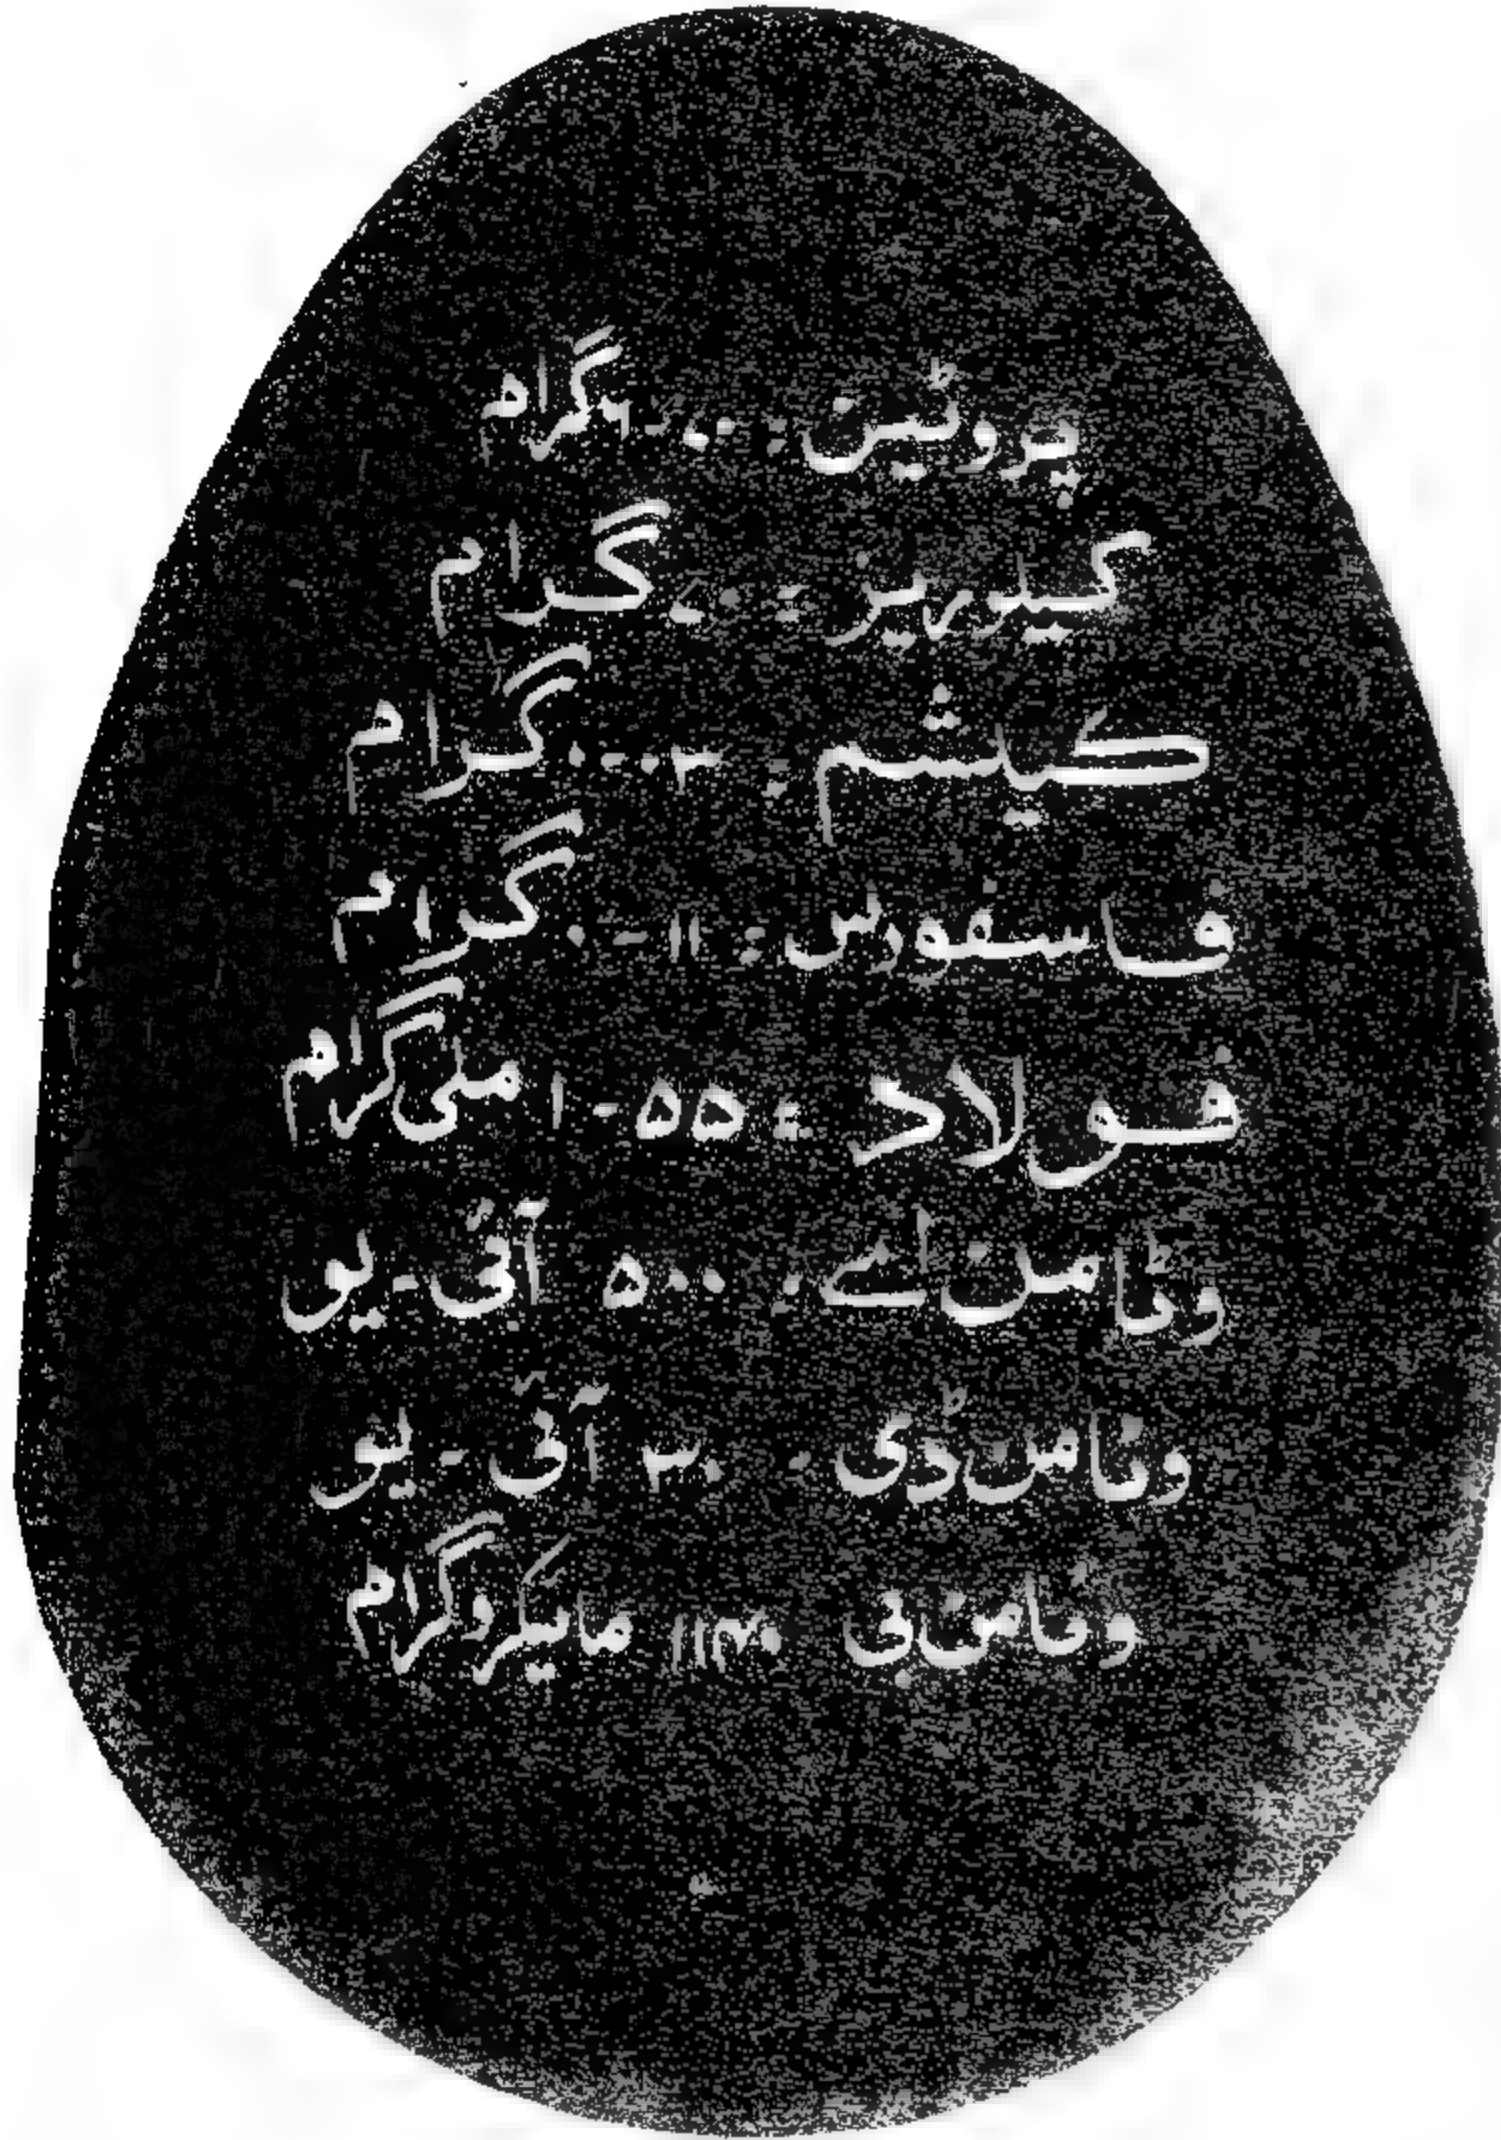 پروٹین : ۶۰۰۰ گرام
کیلوریز : ۷۰ گرام
کیشم : ۰۰۰۳ گرام
فاسفورس : ۱۱-۰ گرام
فولاد : ۵۵-۱ ملی گرام
وٹامن اے ۔ ۵۰۰ آئی-یو
وٹامن ڈی ۔ ۳۰ آئی-یو
وٹامن بی ۱۱۴۰ مائیکروگرام